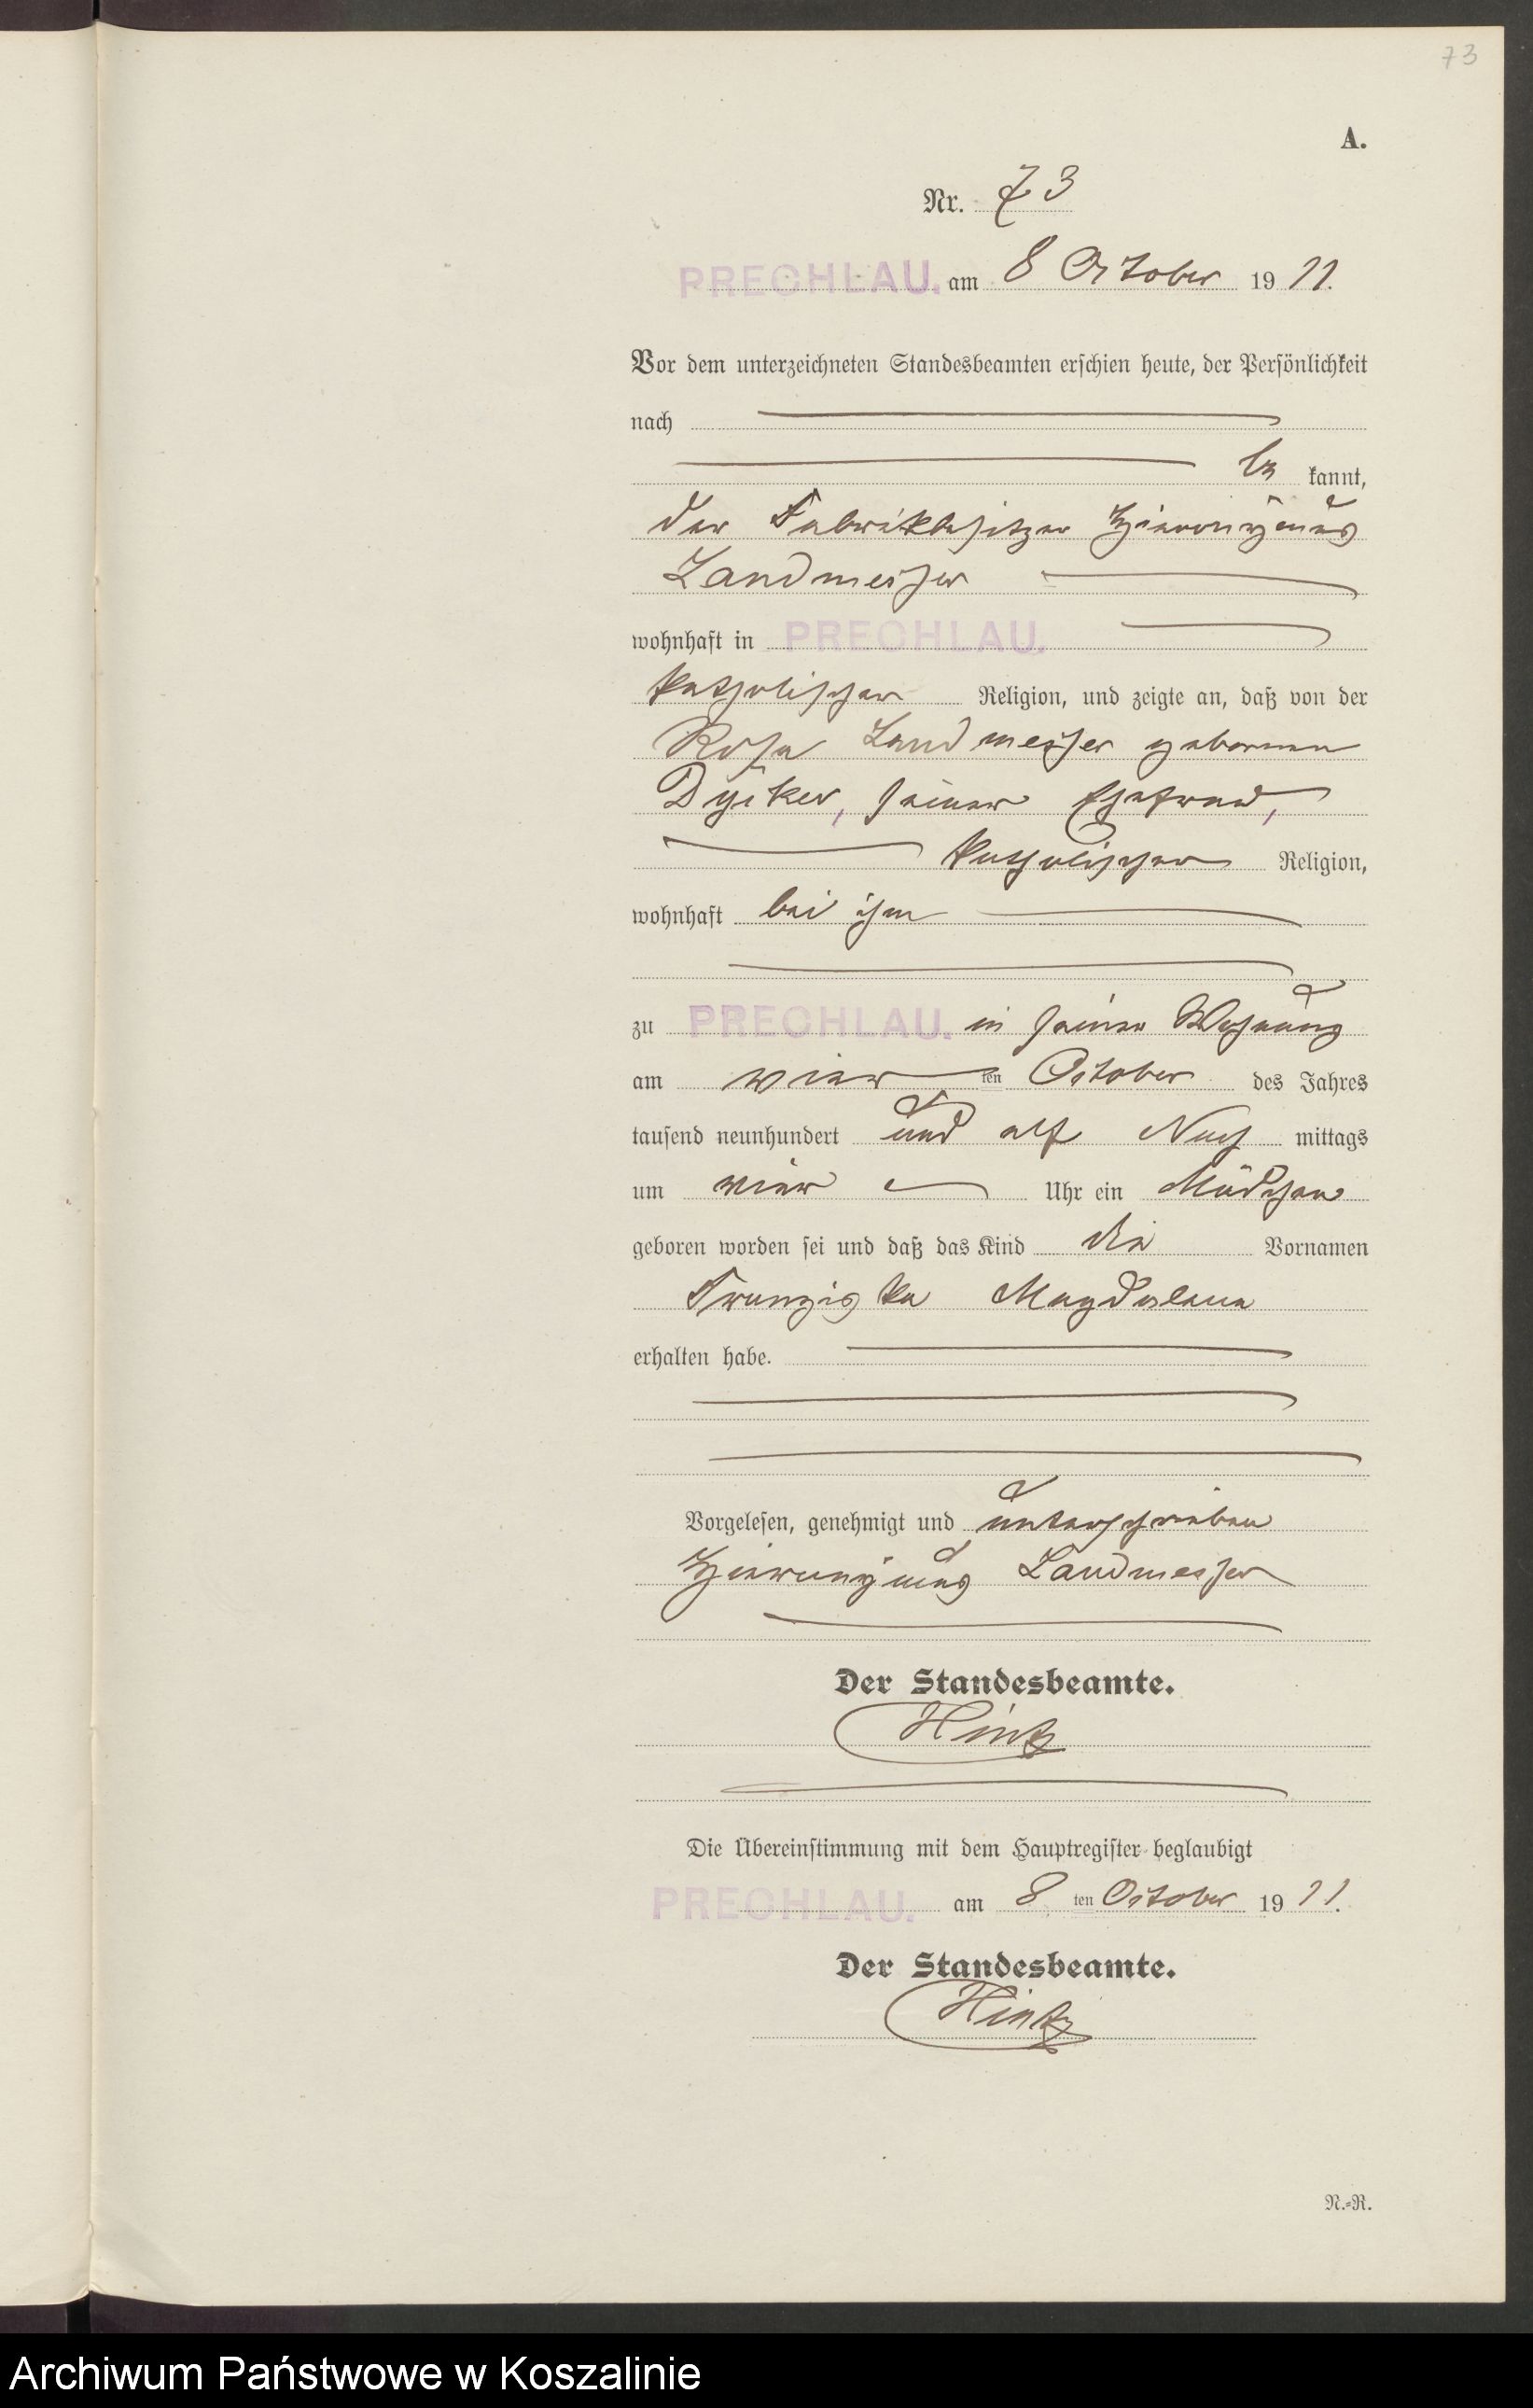 73
A.
Nr. 73
PRECHLAU. am 8 October 1911.
Vor dem unterzeichneten Standesbeamten erschien heute, der Persönlichkeit
nach
be kannt,
der Fabrikbesitzer Hieronÿmus
Landmesser
wohnhaft in PRECHLAU.
katholischer Religion, und zeigte an, daß von der
Rosa Landmesser geborenen
Dÿcker, seiner Ehefrau,
katholischer Religion,
wohnhaft bei ihm
zu PRECHLAU. in seiner Wohnung
am vier ten October des Jahres
tausend neunhundert und elf Nach mittags
um vier Uhr ein Mädchen
geboren worden sei und daß das Kind die Vornamen
Franziska Magdalena
erhalten habe.
Vorgelesen, genehmigt und unterschrieben
Hieronÿmus Landmesser
Der Standesbeamte.
Hintz
Die Übereinstimmung mit dem Hauptregister beglaubigt
PRECHLAU. am 8 ten October 1911.
Der Standesbeamte.
Hintz
N.-R.
Archiwum Państwowe w Koszalinie